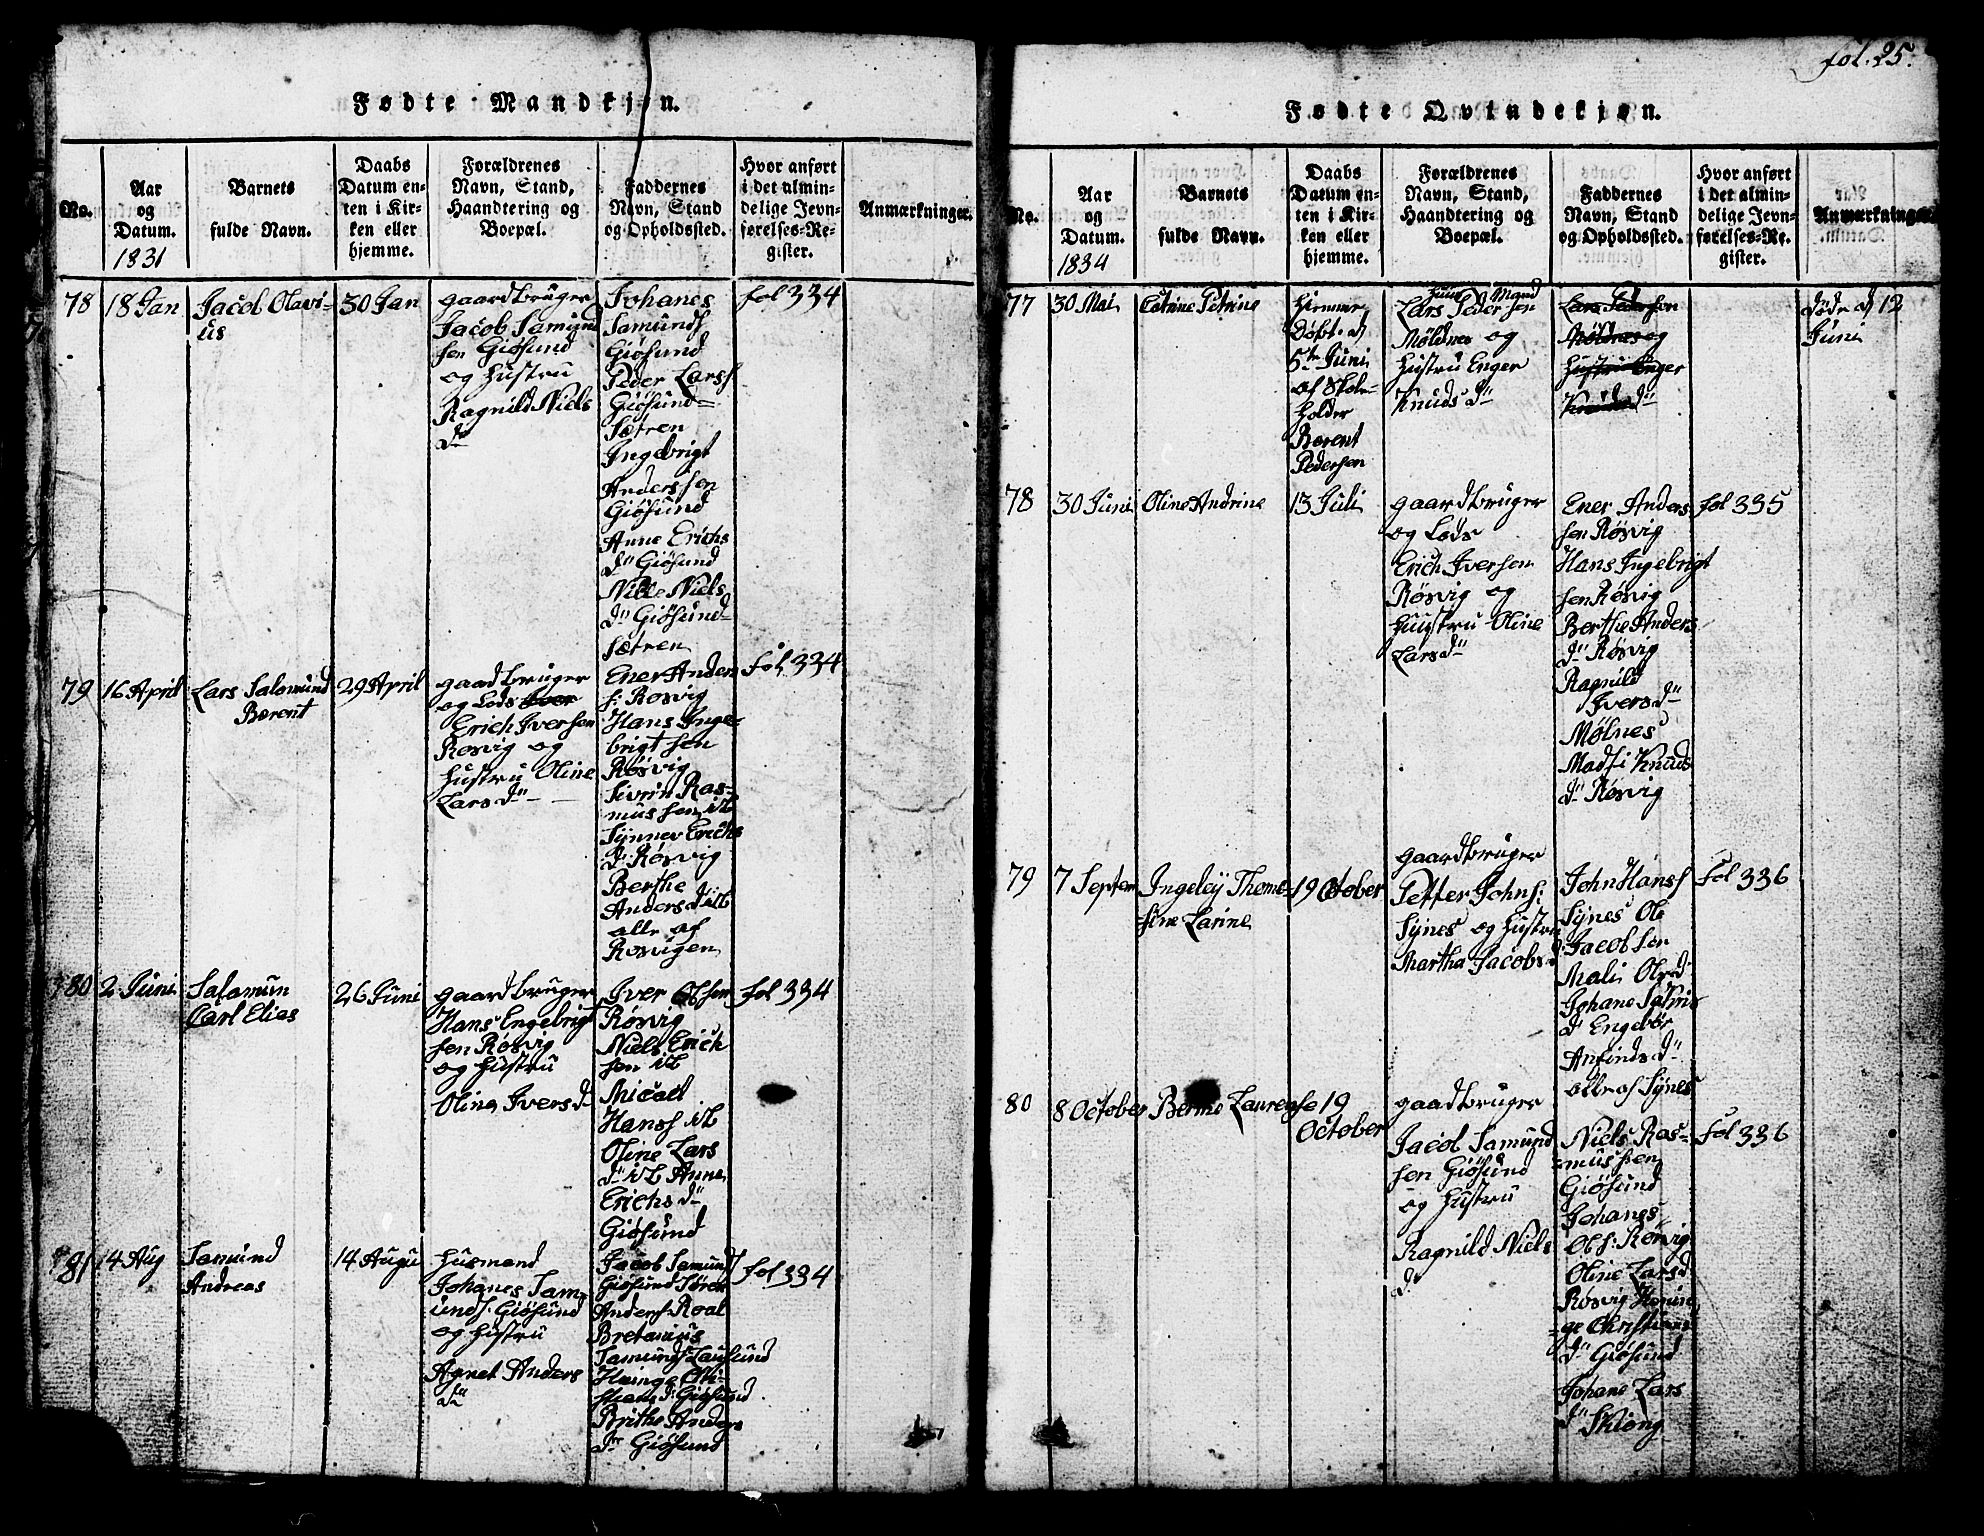 fol. 25.
Fødte Mandkjøn.
No.
Aar
og
Datum.
1831
Barnets
fulde Navn.
Daabs
Datum en-
ten i Kir-
ken eller
hjemme.
Forældrenes
Navn, Stand,
Haandtering og
Boepæl.
Faddernes
Navn, Stand
og Opholdssted.
Hvor anført
i det almin-
delige Jevn-
førelses-Re-
gister.
Anmærkninger.
78
18 Jan
Jacob Olavi-
us
30 Jan
gaardbruger
Jacob Samund
sen Giøsund
og Hustru
Ragnild Niels
dr
Johanes
Samunds
Giøsund
Peder Larss
Giøsund-
Sætren
Ingebrigt
Anderssen
Giøsund
Anne Erichs
dr Giøsund
Nille Niels
dr Giøsund-
sætren
fol 334
79
16 April
Lars Salomund
Berent
29 April
gaardbruger
og Lods Iver
Erich Iversen
Rosvig og
Hustru Oline
Lars dr
Ener Anden
s: Rosvig
Hans Inge-
brigtsen
Røsvig
Sivert Ras-
mussen
Synnev Erichs
dr Røsvig
Berthe
Anders dr
alle af
Rosvigen
fol 334
80
2 Juni
Salamun
Carl Elias
26 Juni
gaardbruger
Hans Engebrigt
sen Rosvig
og Hustru
Oline Ivers d
Iver Olsen
Røsvig
Niels Erich
sen
Micael
Hanss
Oline Lars
dr Anne
Erichs dr
Giøsund
fol 334
81
14 Aug
Samund
Andreas
14 Augu
Husmand
Johanes Sam-
unds. Giøsund
og Hustru
Agnet Anders
dr
Jacob Samunds
Giøsund Søren
Anders Roal
Bretanius
Samunds Lausund
Giøsund
Brithe Anders
dr Giøsund
fol 334
Fødte Qvindekjøn.
No.
Aar
og
Datum.
1834
Barnets
fulde Navn.
Daabs
Datum en-
ten i Kir-
ken eller
hjemme.
Forældrenes
Navn, Stand,
Haandtering og
Boepæl.
Faddernes
Navn, Stand
og Opholdssted.
Hvor anført
i det almin-
delige Jevn-
førelses-Re-
gister.
Anmærkninger
77
30 Mai
Catrine Petrine
Hjemme
Døbt d
5te Juni
af Skole-
holder
Berent
Pedersen
Huus Mand
Lars Pedersen
Møldnes og
Hustru Enger
Knuds dr
Lars Pedersen
Møldnes og
Hustru Enger
Knuds dr
Døde d 12
Juni
78
30 Juni
Oline Andrine
13 Juli
gaardbruger
og Lods
Erich Iversen
Røsvig og
Huustru Oline
Lars dr
Ener Anders
sen Røsvig
Hans Ingebrigt
sen Røsvig
Berthe Anders
dr Røsvig
Ragnild
Ivers dr
Mølnes
Madsi Knuds
dr Røsvig
fol 335
79
7 Septer
Ingeley Thome-
sine Larine
19 October
gaardbruger
Petter Johns:
Synes og Hustru
Martha Jacobs d
John Hanss
Synes Ole
Jacobsen
Mali Ols d
Johane
dr Engebør
Anfinds dr
alle af Synes
fol 336
80
8 October
Berthe Laurense
19
October
gaardbruger
Jacob Samund
sen Giøsund
og Hustru
Ragnild Niels
dr
Niels Ras-
mussen
Giøsund
Johanes
Ols: Røsvig
Oline Lars d
Røsvig
dr Giøsund
Johane Lars
dr Skiong
fol 336